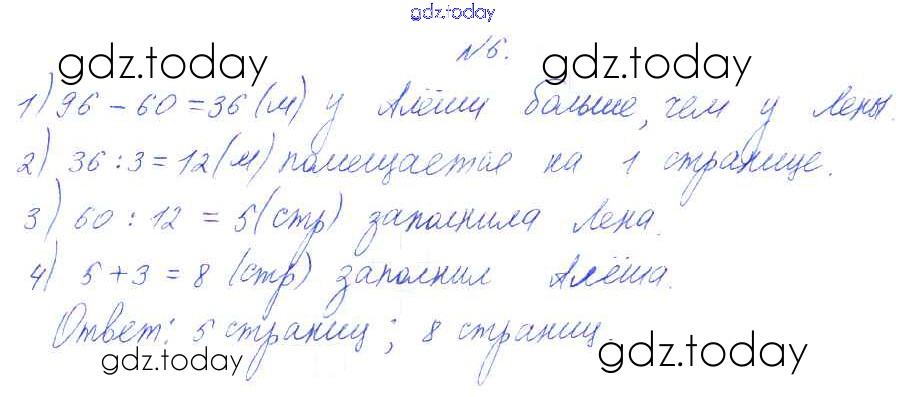 gdz.today
№6.
gdz.today gdz.today
1) 96 - 60 = 36 (м) у Алёши больше, чем у Лены.
2) 36 : 3 = 12 (м) помещается на 1 странице.
3) 60 : 12 = 5 (стр) заполнила Лена.
4) 5 + 3 = 8 (стр) заполнил Алёша.
Ответ: 5 страниц; 8 страниц.
gdz.today gdz.today